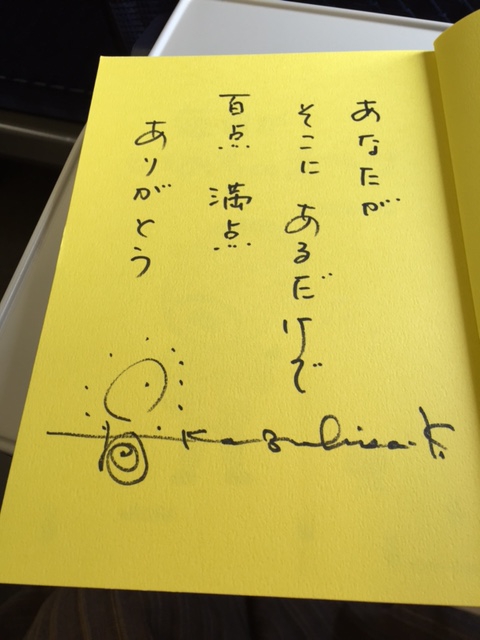 あなたが
そこに あるだけで
百点 満点
ありがとう
Kazuhisa.K.